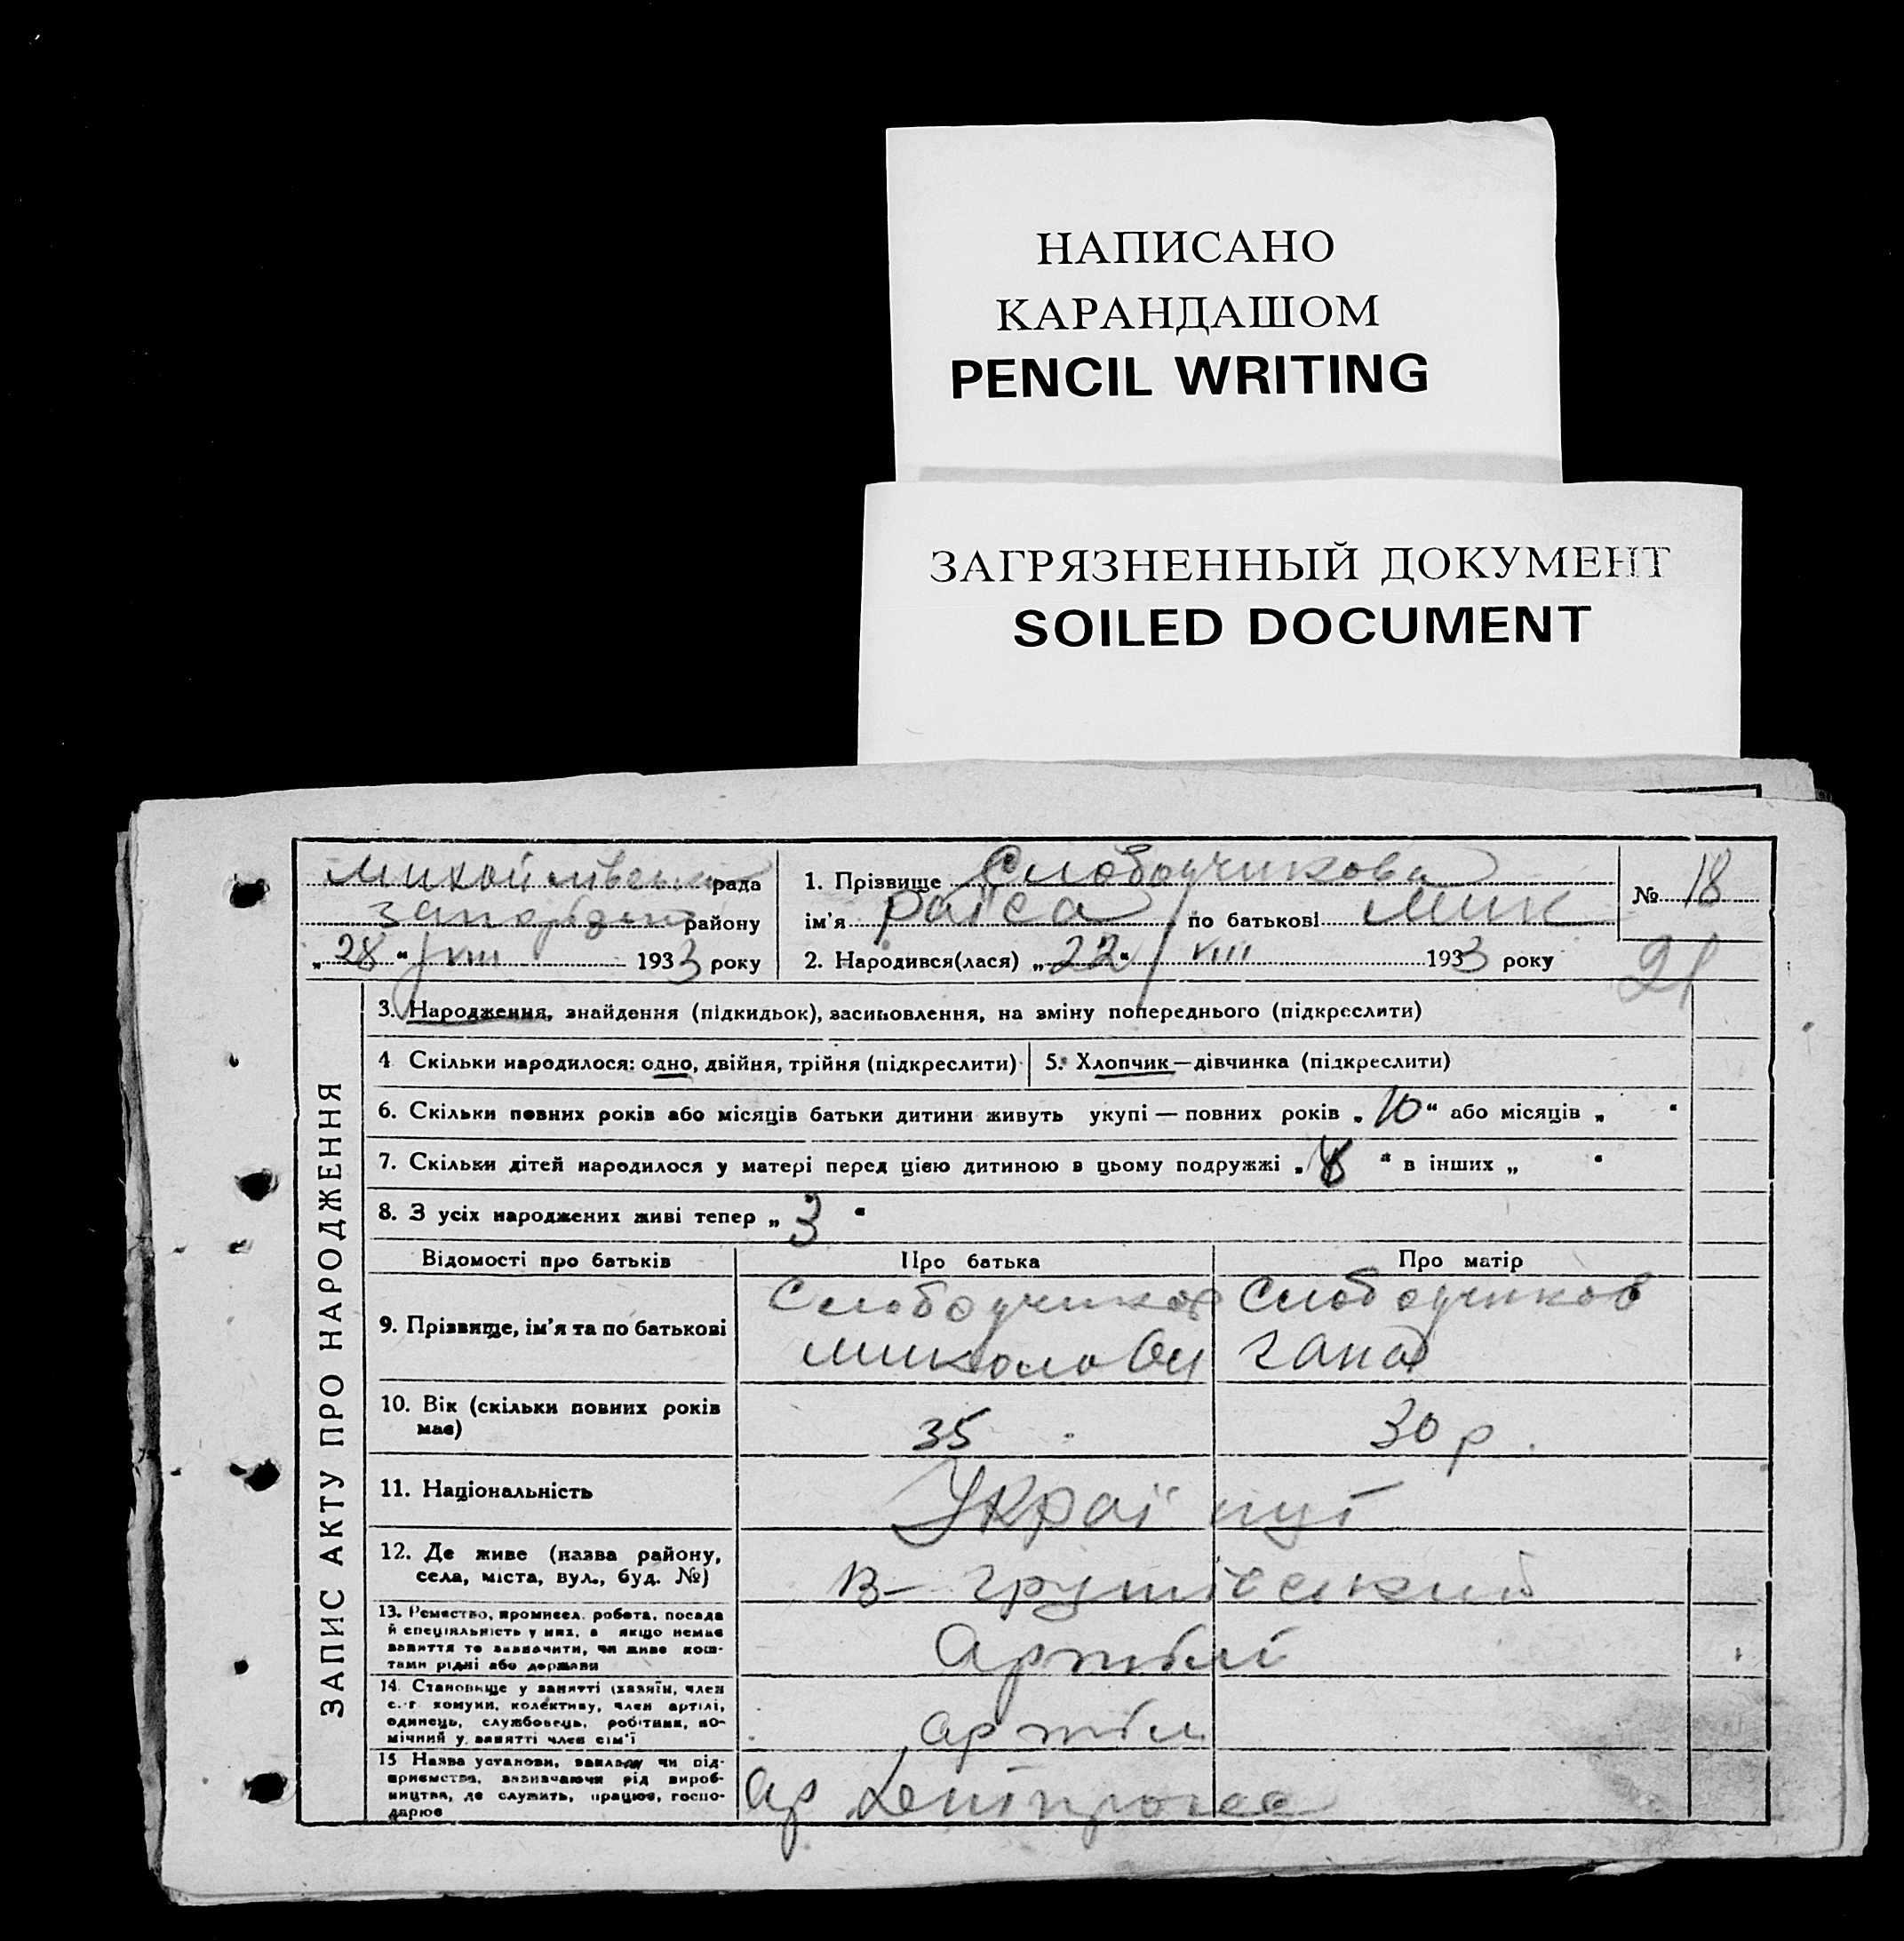 НАПИСАНО
КАРАНДАШОМ
PENCIL WRITING
ЗАГРЯЗНЕННЫЙ ДОКУМЕНТ
SOILED DOCUMENT
рада
району
„28“ VIII 1933 року
1. Прізвище Слободчикова
ім'я Раїса по батькові Мик
2. Народився(лася) „22“ VIII 1933 року
№ 18
21
ЗАПИС АКТУ ПРО НАРОДЖЕННЯ
3. Народження, знайдення (підкидьок), засиновлення, на зміну попереднього (підкреслити)
4 Скільки народилося: одно, двійня, трійня (підкреслити)
5. Хлопчик — дівчинка (підкреслити)
6. Скільки повних років або місяців батьки дитини живуть укупі — повних років „10“ або місяців „ “
7. Скільки дітей народилося у матері перед цією дитиною в цьому подружжі „ “ в інших „ “
8. З усіх народжених живі тепер „3“
Відомості про батьків
Про батька
Про матір
9. Прізвище, ім'я та по батькові
Слободчиков
Микола
Слободчиков
Гана
10. Вік (скільки повних років має)
35
30 р.
11. Національність
Украї нці
12. Де живе (назва району, села, міста, вул., буд. №)
В-
13. Ремество, промисел, робота, посада
й спеціяльність у них, а якщо немає
заняття то зазначити, чи живе кош-
тами рідні або держави
14. Становище у занятті (хазяїн, член
с.-г. комуни, колективу, член артілі,
одинець, службовець, робітник, по-
мічний у занятті член сім'ї
артіл
15 Назва установи, закладу чи під-
приємства, зазначаючи рід вироб-
ництва, де служить, працює, госпо-
дарює
ар